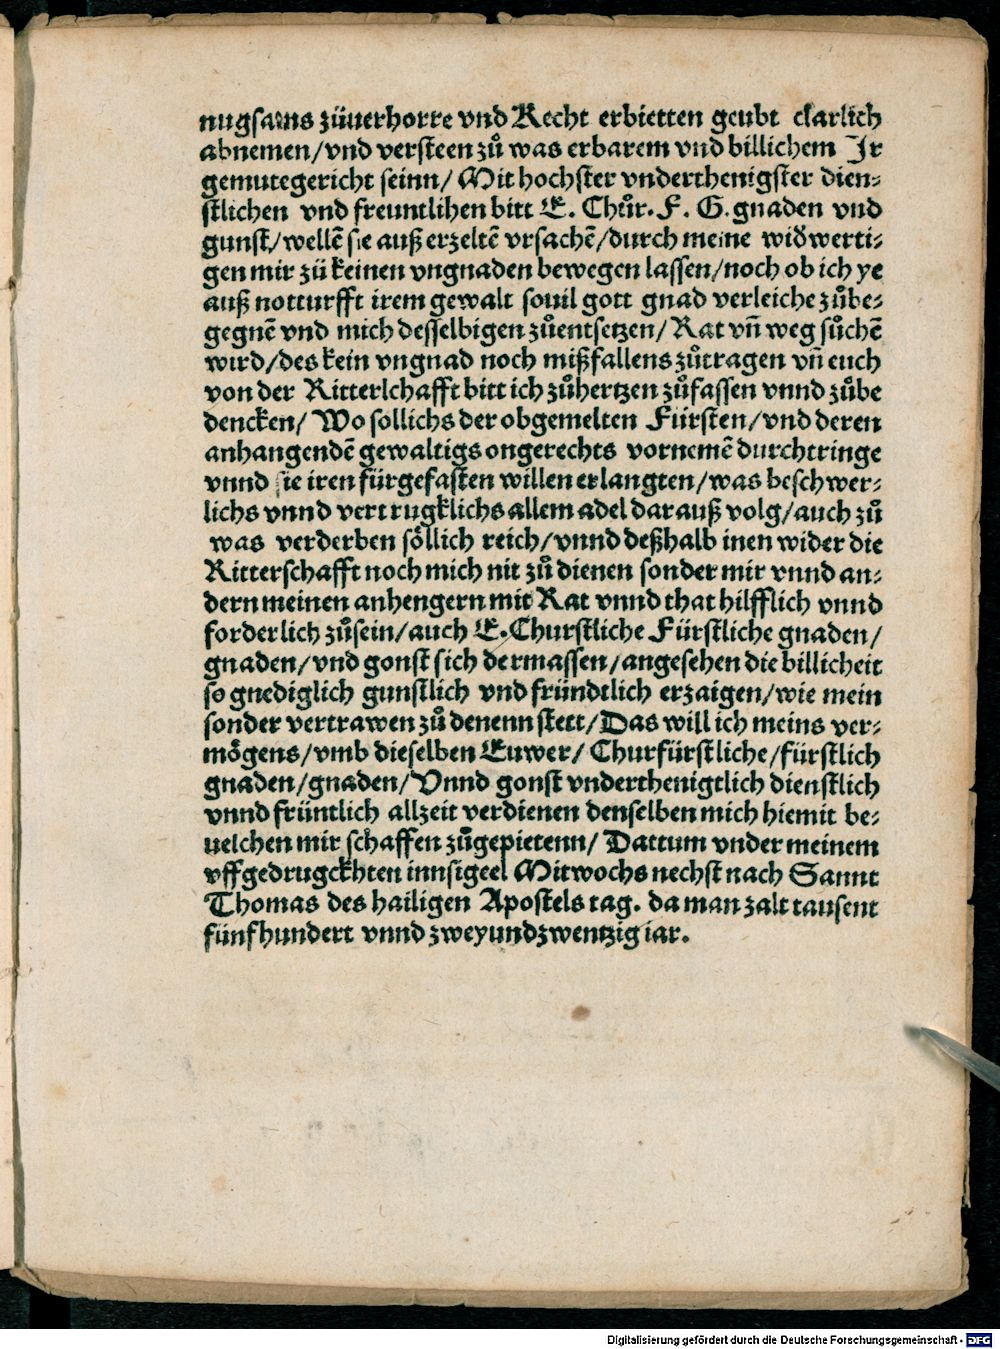 nugsams züuerhorre vnd Recht erbietten geubt clarlich
abnemen/vnd versteen zů was erbarem vnd billichem Ir
gemutegericht seinn/ Mit hochster vnderthenigster dien⸗
stlichen vnd freuntlihen bitt E. Chůr. F. G. gnaden vnd
gunst/wellē sie auß erzeltē vrsachē/durch meine widwerti⸗
gen mir zü keinen vngnaden bewegen lassen/noch ob ich ye
auß notturfft irem gewalt souil gott gnad verleiche zůbe⸗
gegnē vnd mich desselbigen zůentsetzen/ Rat vn̄ weg sůchē
wird/des kein vngnad noch mißfallens zůtragen vn̄ euch
von der Ritterlchafft bitt ich zůhertzen zůfassen vnnd zůbe
dencken/ Wo sollichs der obgemelten Fürsten/vnd deren
anhangendē gewaltigs ongerechts vornemē durchtringe
vnnd sie iren fürgefasten willen erlangten/was beschwer⸗
lichs vnnd vertrugklichs allem adel dar auß volg/auch zů
was verderben söllich reich/vnnd deßhalb inen wider die
Ritterschafft noch mich nit zů dienen sonder mir vnnd an⸗
dern meinen anhengern mit Rat vnnd that hilfflich vnnd
forderlich zůsein/auch E. Churstliche Fürstliche gnaden/
gnaden/vnd gonst sich dermassen/angesehen die billicheit
so gnediglich gunstlich vnd fründtlich erzaigen/wie mein
sonder vertrawen zů denenn stett/Das will ich meins ver⸗
mögens/vmb dieselben Euwer/ Churfürstliche/fürstlich
gnaden/gnaden/Vnnd gonst vnderthenigtlich dienstlich
vnnd früntlich allzeit verdienen denselben mich hiemit be⸗
uelchen mir schaffen zůgepietenn/ Dattum vnder meinem
vffgedrugckhten innsigeel Mitwochs nechst nach Sannt
Thomas des hailigen Apostels tag. da man zalt tausent
fünfhundert vnnd zweyundzwentzig iar.
Digitalisierung gefördert durch die Deutsche Forschungsgemeinschaft - DFG